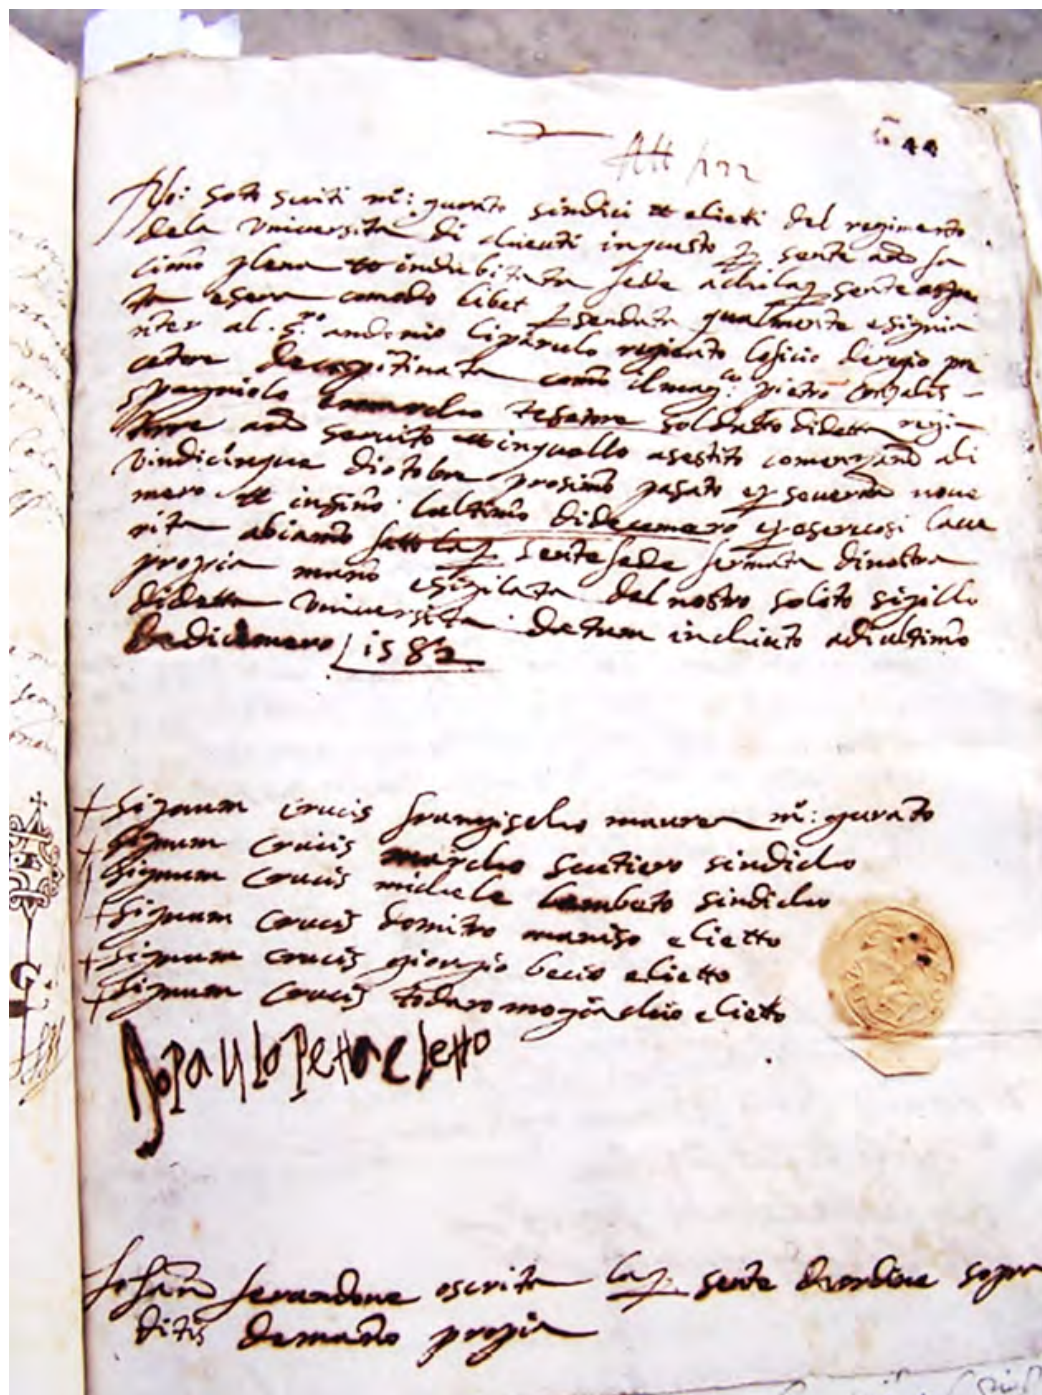 44
Noi soto scriti m.º giurato sindici et elietti del regimento
dela università di chieuti in questo p̱sente anno fa
cimo plena et indubitata fede a chi la p̱sente
ta e sera comodo libet p̱sendata qualmente e signia
nter al antonio liparulo regiento loficio de regio per
cetore de capitinata como il mag.co pietro consalis
spagniolo soldatto didetta regia
torre anno servito et in quello asestito comenzano ali
vindicinque di otobre prosimo pasato e p̱ severato nove
mero et insino lultimo di decemero e p̱ esere cosi la ve
rita abiamo fatto la p̱sente fede fermata di nostra
propia mano e sigilata del nostro solito sigillo
didetta università datum in chiuto adi ultimo
de dicemero 1582
+ Signum crucis frangischo maurea m.º giurato
+ Signum crucis marcho scutiero sindicho
+ Signum crucis michele lambeto sindicho
+ Signum crucis domitro maniso elietto
+ Signum crucis giorgio becio elietto
+ Signum crucis todaro elietto
Io paulo petta eletto
Io ferandone o scrita la p̱sente de ordine sopra
ditis de mano propia